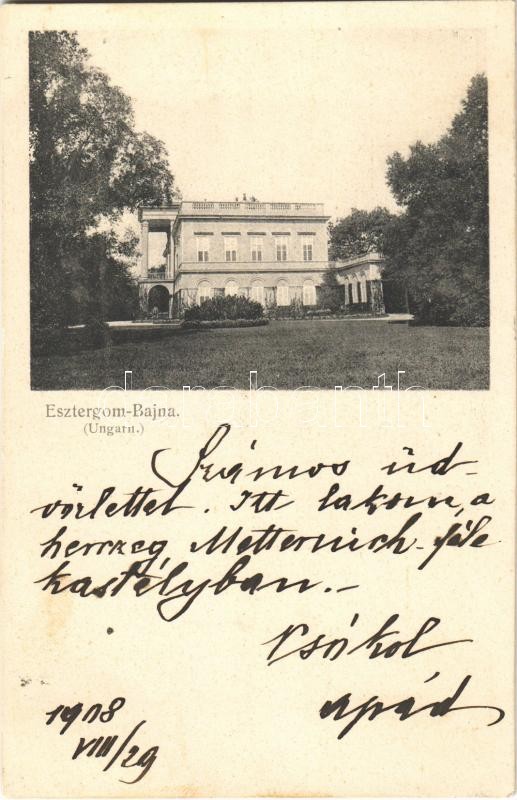 darabanth.com
Esztergom-Bajna.
(Ungarn.)
Számos üd-
vözlettel. Itt lakom, a
herczeg Metternich-féle
kastélyban.-
Csókol
apád
1908
VIII/29